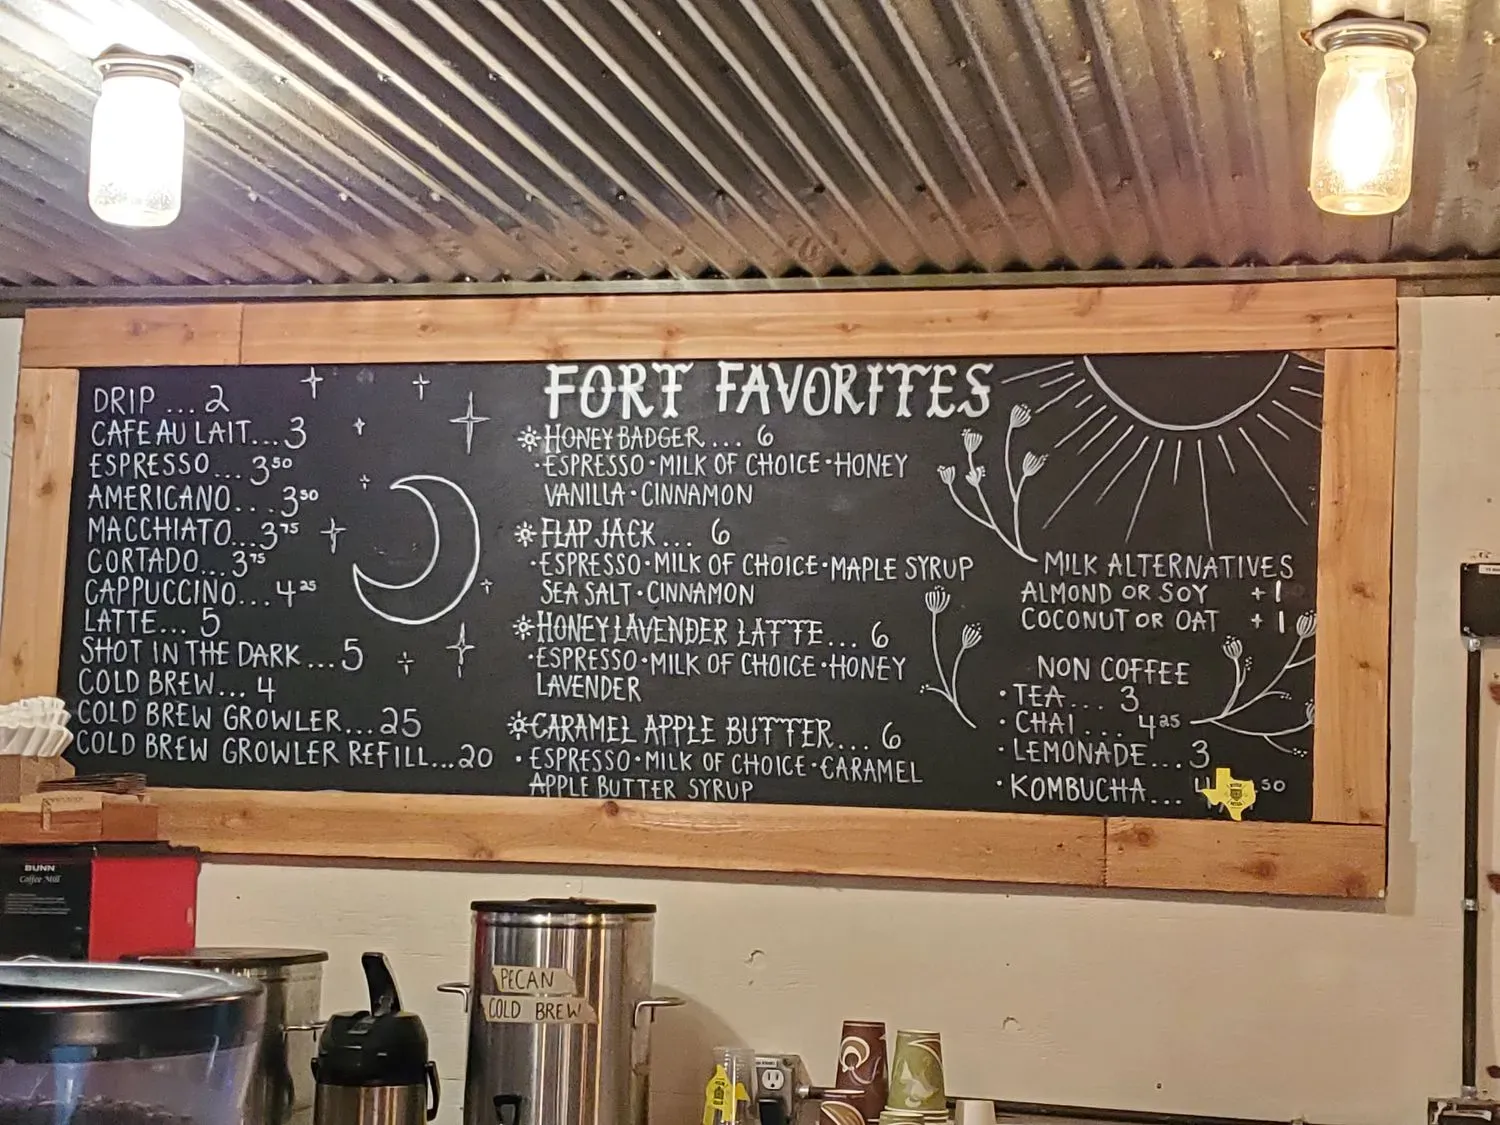 DRIP ... 2
CAFE AU LAIT... 3
ESPRESSO... 3⁵⁰
AMERICANO... 3⁵⁰
MACCHIATO... 3⁷⁵
CORTADO... 3⁷⁵
CAPPUCCINO... 4²⁵
LATTE... 5
SHOT IN THE DARK... 5
COLD BREW... 4
COLD BREW GROWLER... 25
COLD BREW GROWLER REFILL... 20
FORT FAVORITES
HONEY BADGER... 6
·ESPRESSO·MILK OF CHOICE·HONEY
VANILLA·CINNAMON
FLAP JACK... 6
·ESPRESSO·MILK OF CHOICE·MAPLE SYRUP
SEA SALT·CINNAMON
HONEY LAVENDER LATTE... 6
·ESPRESSO·MILK OF CHOICE·HONEY
LAVENDER
CARAMEL APPLE BUTTER... 6
·ESPRESSO·MILK OF CHOICE·CARAMEL
APPLE BUTTER SYRUP
MILK ALTERNATIVES
ALMOND OR SOY +1
COCONUT OR OAT +1
NON COFFEE
·TEA... 3
·CHAI... 4²⁵
·LEMONADE... 3
·KOMBUCHA... 4 ⁵⁰
BUNN
Coffee Mill
PECAN
COLD BREW